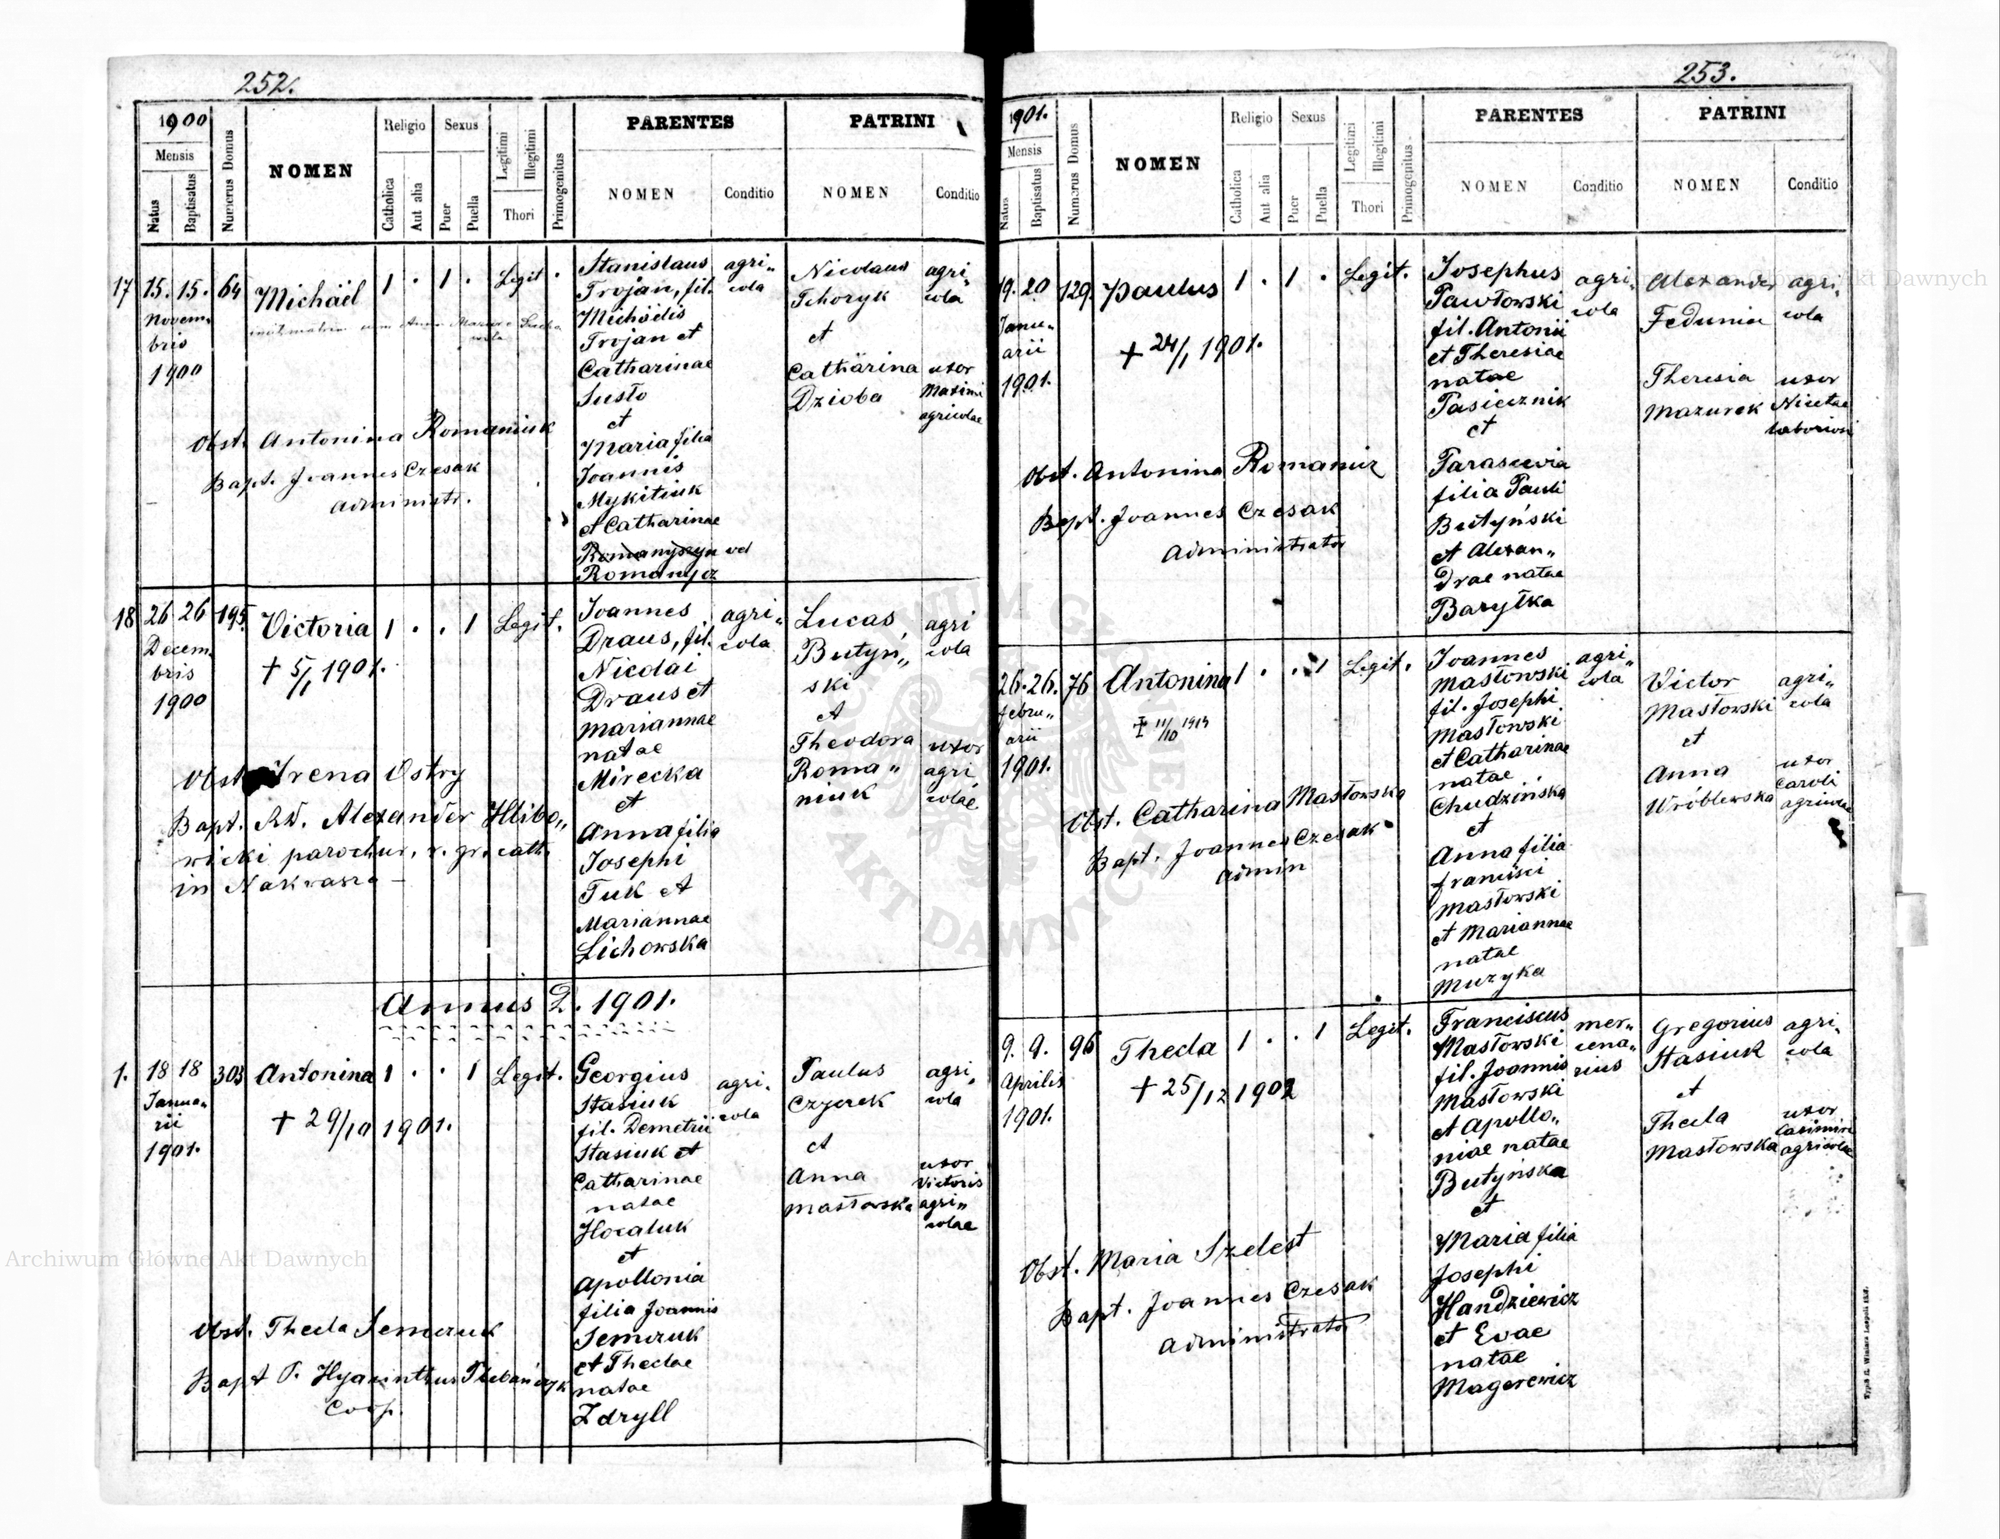 252.
1900
Mensis
Natus
Baptisatus
Numerus Domus
NOMEN
Religio
Catholica
Aut alia
Sexus
Puer
Puella
Legitimi
Illegitimi
Thori
Primogenitus
PARENTES
NOMEN
Conditio
PATRINI
NOMEN
Conditio
17 15. 15. 64 Michäel 1 . 1 . Legit. .
Novem.
bris
1900
Obst. Antonina Romaniuk
Bapt. Joannes Czesak
administr.
Stanislaus
Trojan, fil.
Michäelis
Trojan et
Catharinae
Susto
et
Maria filia
Joannis
Mykitiuk
et Catharinae
Romanyszyn vel
Romanycz
agri„
cola
Nicolaus
Tchoryk
et
Cathärina
Dzioba
agri„
cola
uxor
Maximi
agricolae
18 26 26 195. Victoria 1 . . 1 Legit.
Decem.
bris
1900
+ 5/1 1901.
Obst. Irena Ostry
Bapt. Rd. Alexander Hlibo„
wicki parochus, r. gr. cath.
in Nakwasza —
Joannes
Draus, fil.
Nicolai
Draus et
Mariannae
natae
Mirecka
et
Anna filia
Josephi
Tuk et
Mariannae
Lichowska
agri„
cola
Lucas
Butyń„
ski
et
Theodora
Roma„
niuk
agri
cola
uxor
agri
colae
Annus D. 1901.
1. 18 18 303 Antonina 1 . . 1 Legit.
Janua„
rii
1901.
+ 29/10 1901.
Obst. Thecla Semczuk
Bapt P. Hyacinthus Plebańczyk
Coop.
Georgius
Stasiuk
fil. Demetrii
Stasiuk et
Catharinae
natae
Hocaluk
et
Apollonia
filia Joannis
Semczuk
et Theclae
natae
Zdryll
agri„
cola
Paulus
Czyczek
et
Anna
Masłowska
agri„
cola
uxor
Victoris
agri„
colae
253.
1901.
Mensis
Natus
Baptisatus
Numerus Domus
NOMEN
Religio
Catholica
Aut alia
Sexus
Puer
Puella
Legitimi
Illegitimi
Thori
Primogenitus
PARENTES
NOMEN
Conditio
PATRINI
NOMEN
Conditio
19. 20 129. Paulus 1 . 1 . Legit.
Janu„
arii
1901.
+ 24/1 1901.
Obst. Antonina Romaniuk
Bapt. Joannes Czesak
administrator
Josephus
Pawłowski
fil. Antonii
et Theresiae
natae
Pasiecznik
et
Parascevia
filia Pauli
Butyński
et Alexan„
drae natae
Baryłka
agri„
cola
Alexander
Fedunia
Theresia
Mazurek
agri„
cola
uxor
Nicetae
26. 26. 76 Antonina 1 . . 1 Legit.
Febru„
arii
1901.
Obst. Catharina Masłowska
Bapt. Joannes Czesak
admin
Joannes
Masłowski
fil. Josephi
Masłowski
et Catharinae
natae
Chudzińska
et
Anna filia
Francisci
Masłowski
et Mariannae
natae
Muzyka
agri„
cola
Victor
Masłowski
et
Anna
Wróblewska
agri„
cola
uxor
Caroli
agricolae
9. 9. 96 Thecla 1 . . 1 Legit.
Aprilis
1901.
+ 25/12 1902
Obst. Maria Szelest
Bapt. Joannes Czesak
administrator
Franciscus
Masłowski
fil. Joannis
Masłowski
et Apollo„
niae natae
Butyńska
et
Maria filia
Josephi
Handziewicz
et Evae
natae
Magerewicz
mer„
cena„
rius
Gregorius
Stasiuk
et
Thecla
Masłowska
agri„
cola
uxor
Casimiri
agricolae
Archiwum Główne Akt Dawnych
Archiwum Główne Akt Dawnych
ARCHIWUM GŁÓWNE AKT DAWNYCH